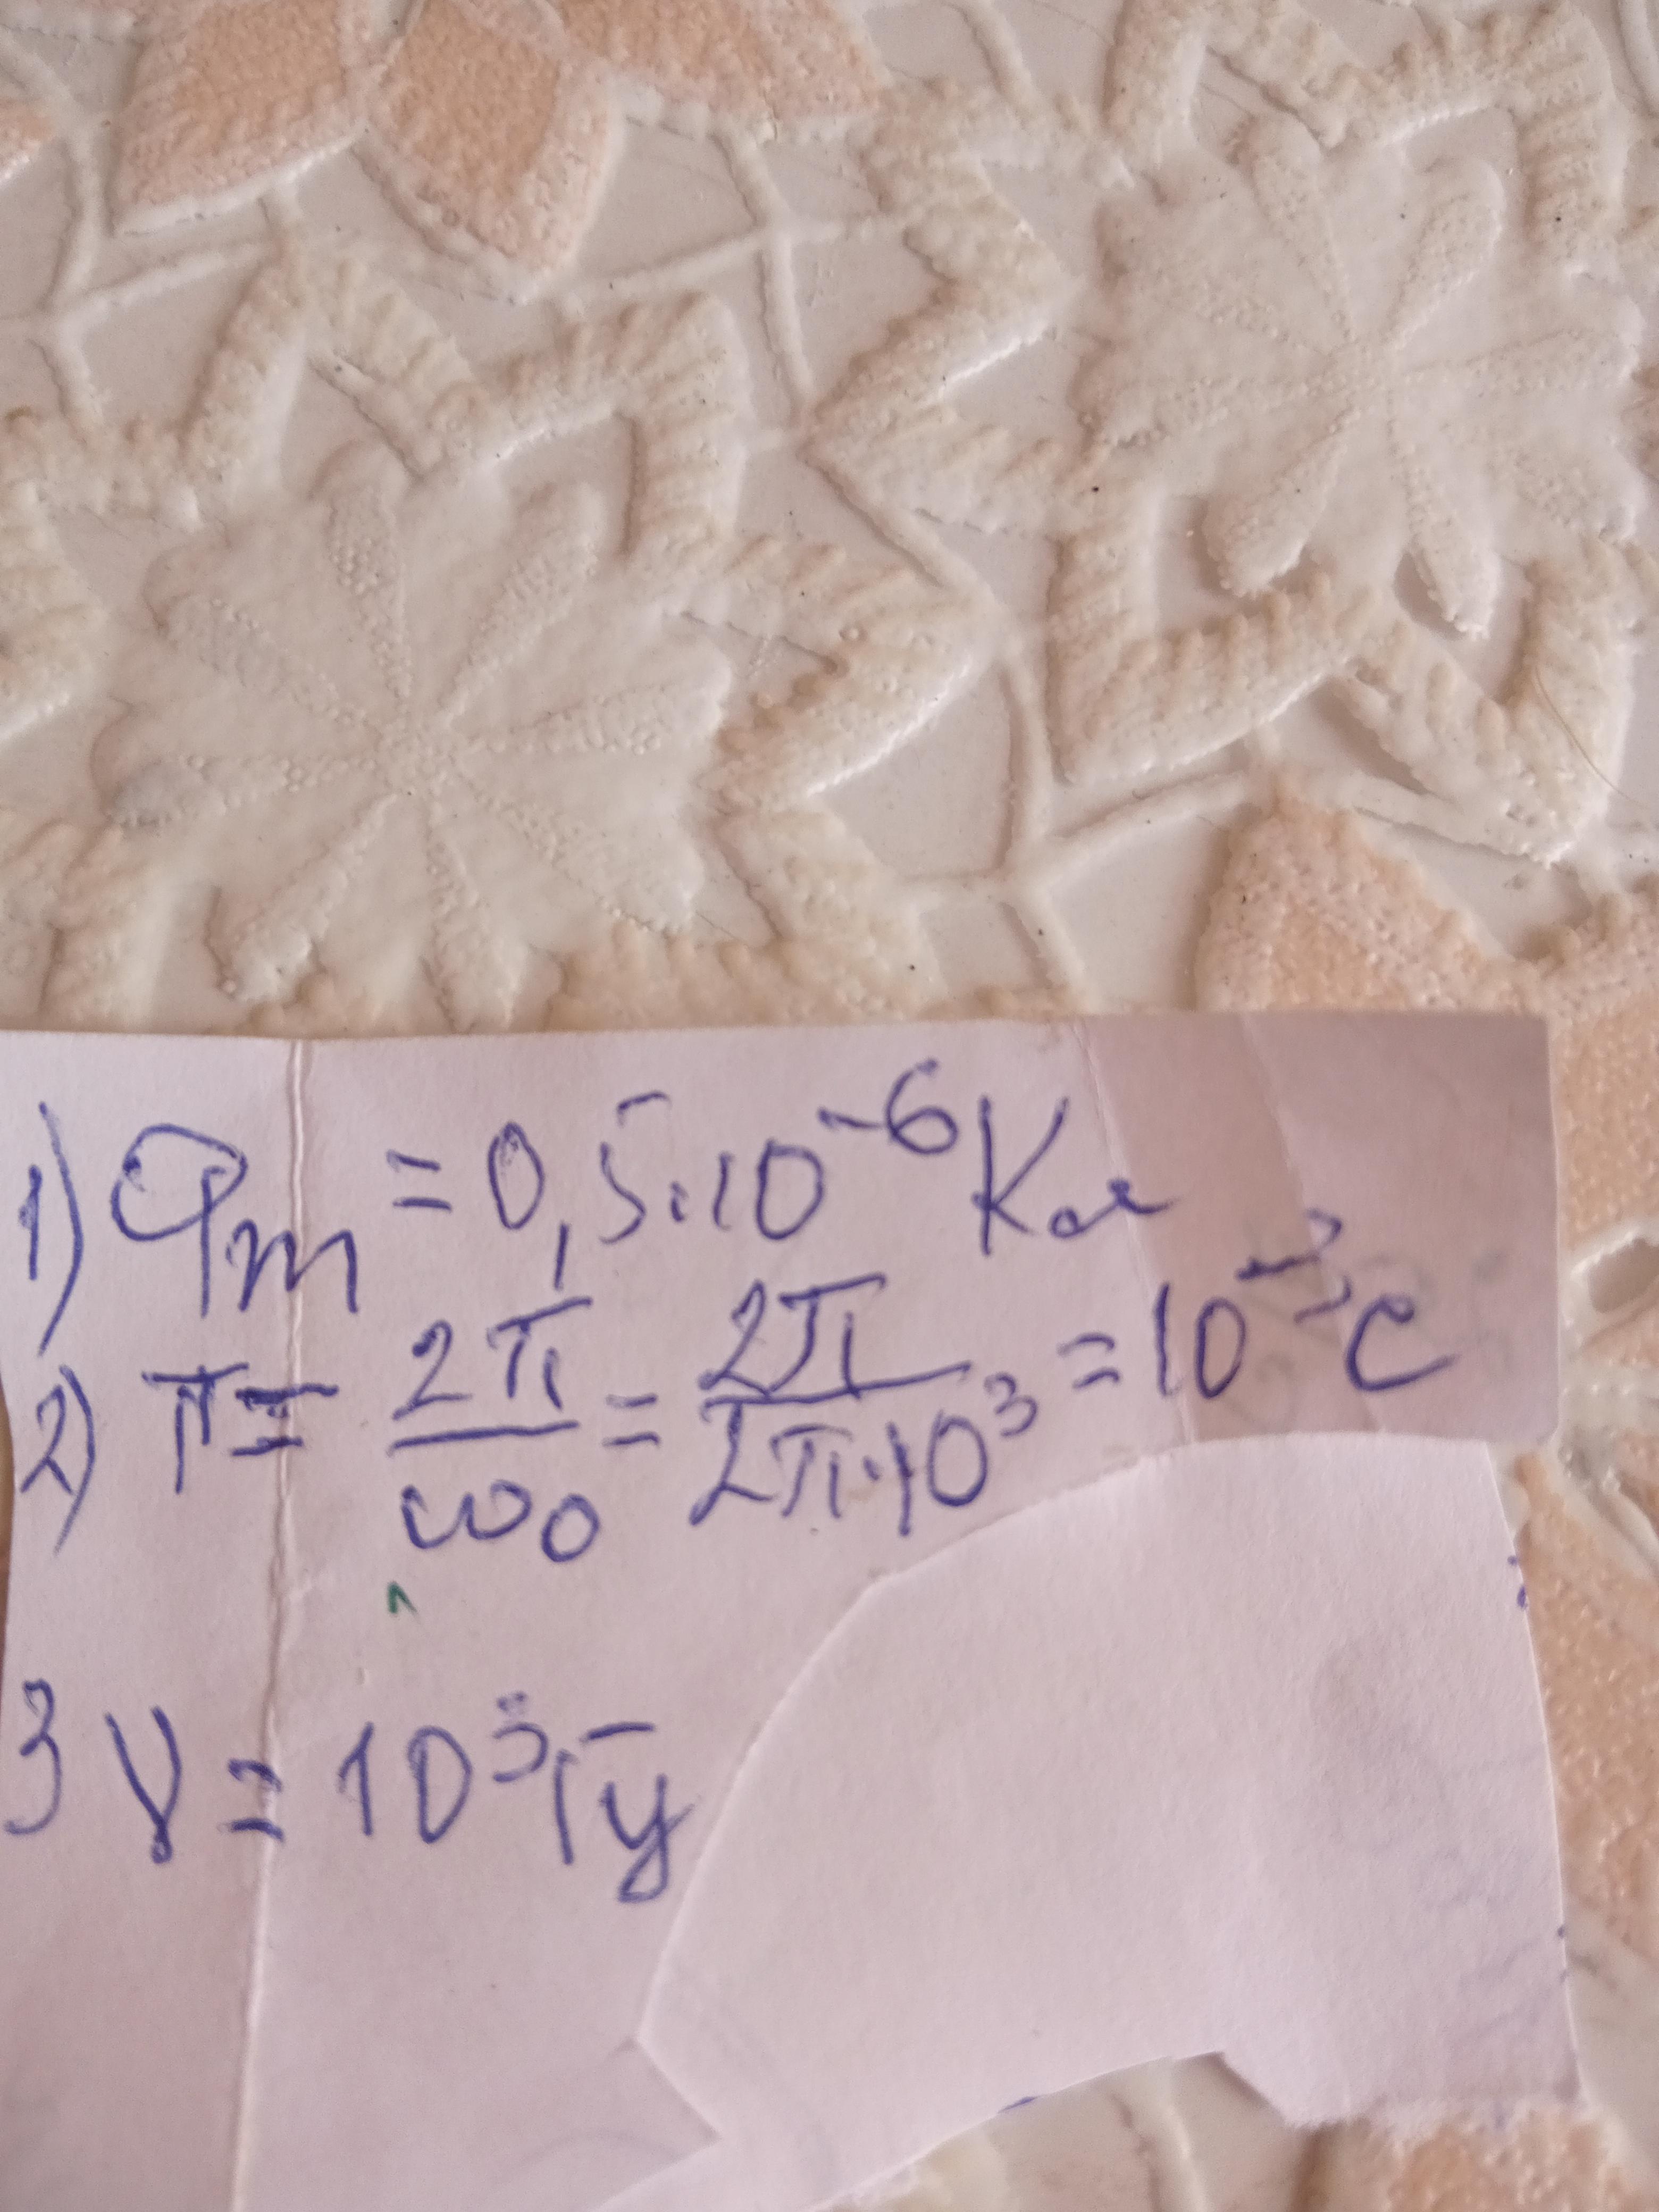 1) qm = 0,5·10⁻⁶ Кл
2) T = 2π/ω₀ = 2π/2π·10³ = 10⁻³ с
3 ν = 10³ Гц